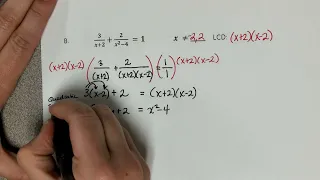 B. 3/(x+2) + 2/(x²-4) = 1 x ≠ -2,2 LCD: (x+2)(x-2)
(x+2)(x-2) (3/(x+2) + 2/((x+2)(x-2))) = (1/1) (x+2)(x-2)
3(x-2) + 2 = (x+2)(x-2)
+2 = x²-4